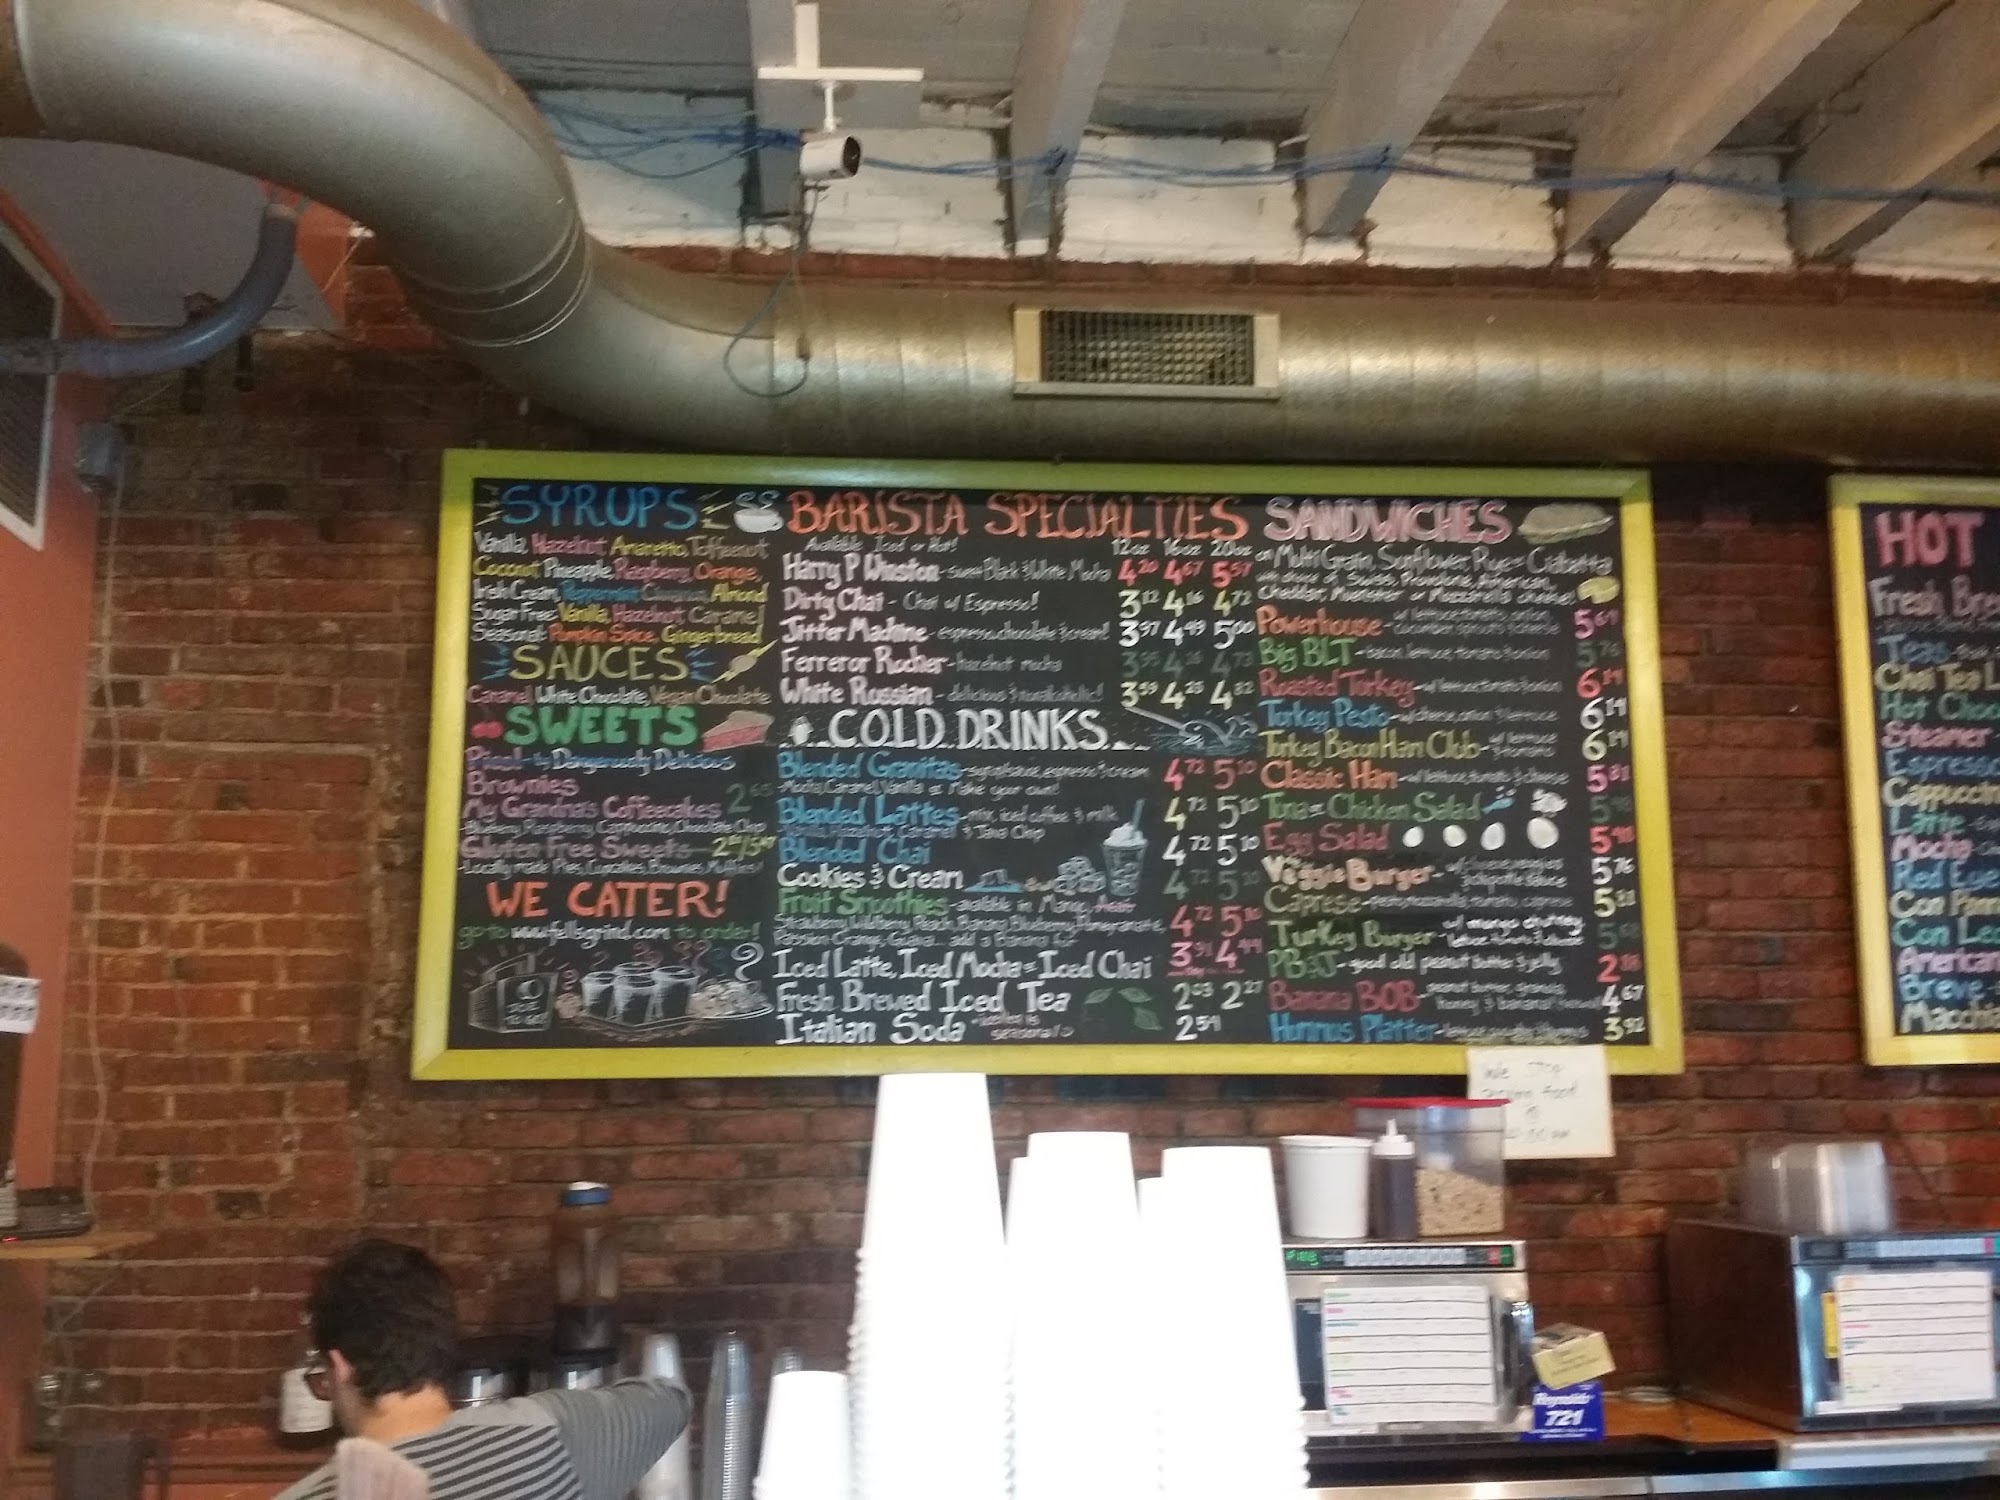 SYRUPS
Vanilla, Hazelnut, Amaretto, Toffeenut
Coconut, Pineapple, Raspberry, Orange,
Irish Cream, Peppermint, Cinnamon, Almond
Sugar Free: Vanilla, Hazelnut, Caramel
Seasonal: Pumpkin Spice, Gingerbread
SAUCES
Caramel, White Chocolate, Vegan Chocolate
SWEETS
Pies! - by Dangerously Delicious
Brownies
My Grandma's Coffeecakes 2.65
- Blueberry, Raspberry, Cappuccino, Chocolate Chip
Gluten Free Sweets
- Locally made Pies, Cupcakes, Brownies, Muffins!
WE CATER!
go to www.fellsgrind.com to order!
BARISTA SPECIALTIES
Available Iced or Hot! 12oz 16oz 20oz
Harry P Winston - sweet Black & White Mocha 4.20 4.67 5.57
Dirty Chai - Chai w/ Espresso! 3.12 4.16 4.72
Jitter Machine - espresso, chocolate & cream! 3.97 4.49 5.00
Ferreror Rocher - hazelnut mocha
White Russian - delicious & nonalcoholic! 3.59 4.25 4.82
COLD DRINKS
Blended Granitas - syrup/sauce, espresso & cream 4.72 5.10
- Mocha, Caramel, Vanilla or Make your own!
Blended Lattes - mix, iced coffee & milk 4.72 5.10
- Vanilla, Hazelnut, Caramel & Java Chip
Blended Chai 4.72 5.10
Cookies & Cream 4.72 5.10
Fruit Smoothies - available in Mango, Acai 4.72 5.10
Strawberry, Wildberry, Peach, Banana, Blueberry, Pomegranate,
Passion Orange, Guava... add a Banana
Iced Latte, Iced Mocha or Iced Chai 3.91 4.44
Fresh Brewed Iced Tea 2.03 2.27
Italian Soda 2.59
SANDWICHES
on Multi Grain, Sunflower, Rye or Ciabatta
with choice of Swiss, Provolone, American,
Cheddar, Muenster or Mozzarella cheese!
Powerhouse - w/ lettuce, tomato, onion 5.69
cucumber, sprouts & cheese
Big BLT - bacon, lettuce, tomato & onion 5.76
Roasted Turkey - w/ lettuce, tomato & onion 6.19
Turkey Pesto - w/ cheese, onion & lettuce 6.19
Turkey Bacon Ham Club - w/ lettuce & tomato 6.19
Classic Ham - w/ lettuce, tomato & cheese 5.81
Tuna or Chicken Salad
Egg Salad 5.90
Veggie Burger - w/ cheese, veggies 5.76
& chipotle sauce
Caprese - fresh mozzarella, tomato, 5.81
Turkey Burger - w/ mango chutney
lettuce, tomato & cheese
PB&J - good old peanut butter & jelly 2.88
Banana BOB - peanut butter, granola, 4.67
honey, & banana!
Hummus Platter - 3.92
We
food
@
HOT
Fresh Bre
Teas
Chai Tea L
Hot Choc
Steamer
Espresso
Cappuccin
Latte
Mocha
Red Eye
Con Pann
Con Lec
American
Breve
Macchia
Reynolds
721